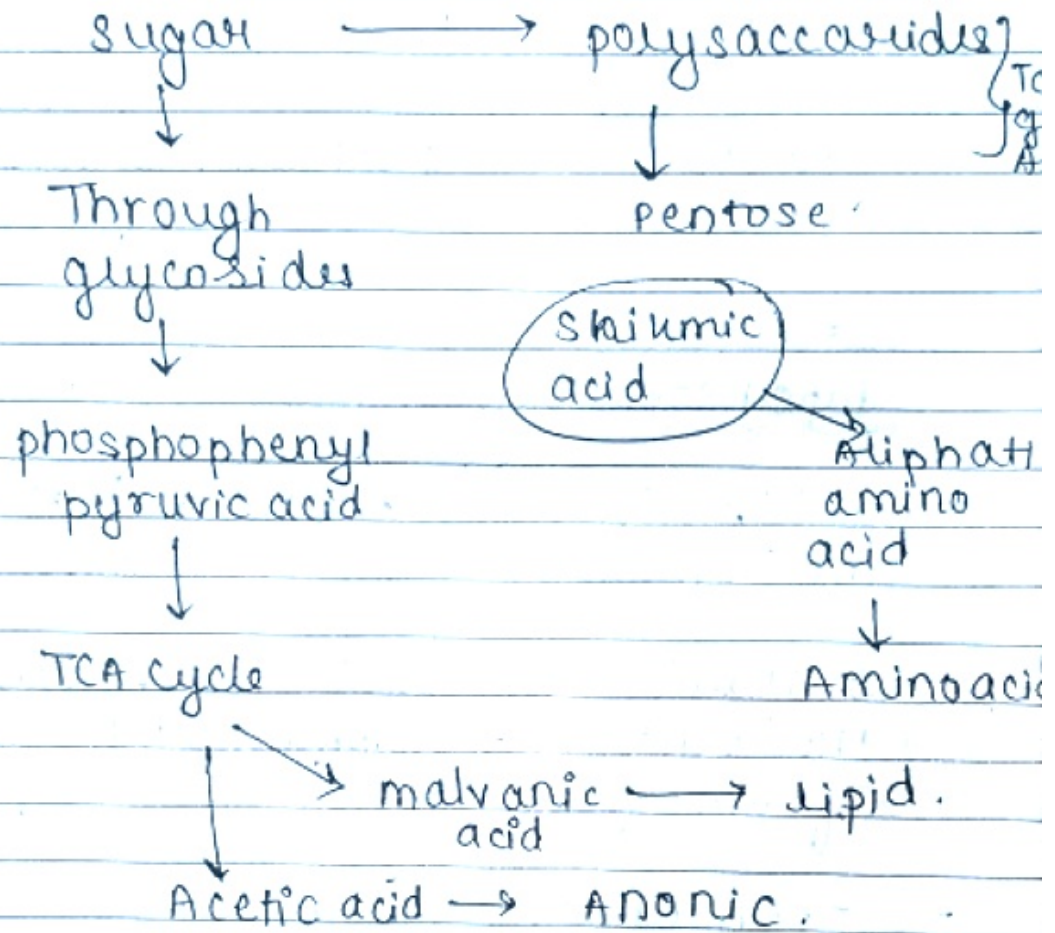 sugar → polysaccarides
TC
g
A
↓ ↓
Through
glycosides
pentose.
↓
skiumic
acid
phosphophenyl
pyruvic acid
Aliphati
amino
acid
↓ ↓
TCA cycle
Aminoacid
malvanic → lipid.
acid
Acetic acid → Anonic.